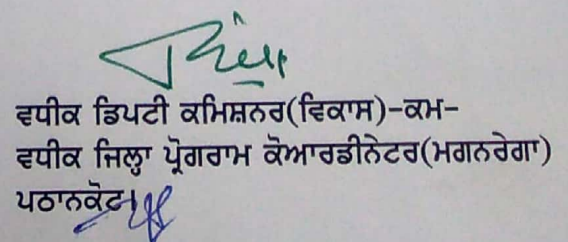 ਵਧੀਕ ਡਿਪਟੀ ਕਮਿਸ਼ਨਰ(ਵਿਕਾਸ)-ਕਮ-
ਵਧੀਕ ਜਿਲ੍ਹਾ ਪ੍ਰੋਗਰਾਮ ਕੋਆਰਡੀਨੇਟਰ(ਮਗਨਰੇਗਾ)
ਪਠਾਨਕੋਟ।